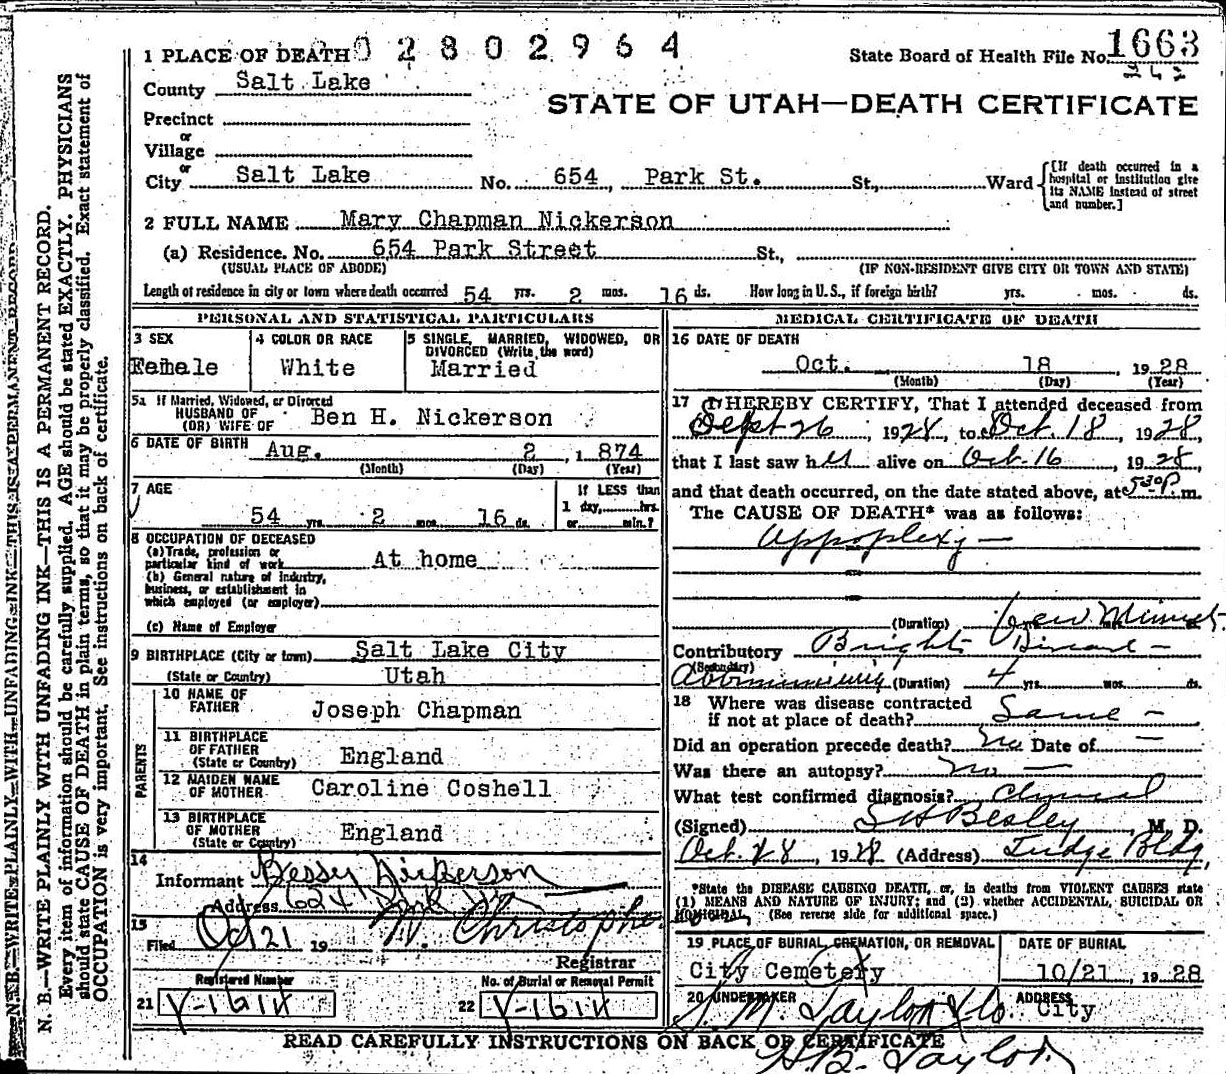 N. B.—WRITE PLAINLY WITH UNFADING INK—THIS IS A PERMANENT RECORD.
N. B.—WRITE PLAINLY, WITH UNFADING INK—THIS IS A PERMANENT RECORD.
Every item of information should be carefully supplied. AGE should be stated EXACTLY. PHYSICIANS
should state CAUSE OF DEATH in plain terms, so that it may be properly classified. Exact statement of
OCCUPATION is very important. See instructions on back of certificate.
1 PLACE OF DEATH 0 2 8 0 2 9 6 4
State Board of Health File No. 1663
242
County Salt Lake
STATE OF UTAH—DEATH CERTIFICATE
Precinct
or
Village
or
City Salt Lake No. 654, Park St. St., Ward
[If death occurred in a
hospital or institution give
its NAME instead of street
and number.]
2 FULL NAME Mary Chapman Nickerson
(a) Residence. No. 654 Park Street St.,
(USUAL PLACE OF ABODE) (IF NON-RESIDENT GIVE CITY OR TOWN AND STATE)
Length of residence in city or town where death occurred 54 yrs. 2 mos. 16 ds. How long in U.S., if foreign birth? yrs. mos. ds.
PERSONAL AND STATISTICAL PARTICULARS
3 SEX
Female
4 COLOR OR RACE
White
5 SINGLE, MARRIED, WIDOWED, OR
DIVORCED (Write the word)
Married
5a If Married, Widowed, or Divorced
HUSBAND OF
(OR) WIFE OF Ben H. Nickerson
6 DATE OF BIRTH Aug. 2, 1874
(Month) (Day) (Year)
7 AGE
54 yrs. 2 mos. 16 ds.
If LESS than
1 day, hrs.
or min.?
8 OCCUPATION OF DECEASED
(a) Trade, profession or
particular kind of work At home
(b) General nature of industry,
business, or establishment in
which employed (or employer)
(c) Name of Employer
9 BIRTHPLACE (City or town) Salt Lake City
(State or Country) Utah
PARENTS
10 NAME OF
FATHER Joseph Chapman
11 BIRTHPLACE
OF FATHER
(State or Country) England
12 MAIDEN NAME
OF MOTHER Caroline Coshell
13 BIRTHPLACE
OF MOTHER
(State or Country) England
14
Informant Bessy Nickerson
Address 624 Park
15
Filed Oct 21 19 W. Christopher
Registrar
Registered Number
21 V-1614
No. of Burial or Removal Permit
22 V-1614
MEDICAL CERTIFICATE OF DEATH
16 DATE OF DEATH
Oct. 18 1928
(Month) (Day) (Year)
17 I HEREBY CERTIFY, That I attended deceased from
Sept 26, 1928, to Oct. 18, 1928,
that I last saw her alive on Oct. 16, 1928,
and that death occurred, on the date stated above, at 530P m.
The CAUSE OF DEATH* was as follows:
Appoplexy—
(Duration) few Minuets
Contributory Brights Disease—
(Secondary)
(Duration) 4 yrs. mos. ds.
18 Where was disease contracted
if not at place of death? Same—
Did an operation precede death? No Date of —
Was there an autopsy? No —
What test confirmed diagnosis? Clinical
(Signed) S H Besley M. D.
Oct. 18, 1928 (Address) Judge Bldg,
*State the DISEASE CAUSING DEATH, or, in deaths from VIOLENT CAUSES state
(1) MEANS AND NATURE OF INJURY; and (2) whether ACCIDENTAL, SUICIDAL OR
HOMICIDAL. (See reverse side for additional space.)
19 PLACE OF BURIAL, CREMATION, OR REMOVAL
City Cemetery
DATE OF BURIAL
10/21, 1928
20 UNDERTAKER
S. M. Taylor & Co.
ADDRESS
City
READ CAREFULLY INSTRUCTIONS ON BACK OF CERTIFICATE
H.B. Taylor.